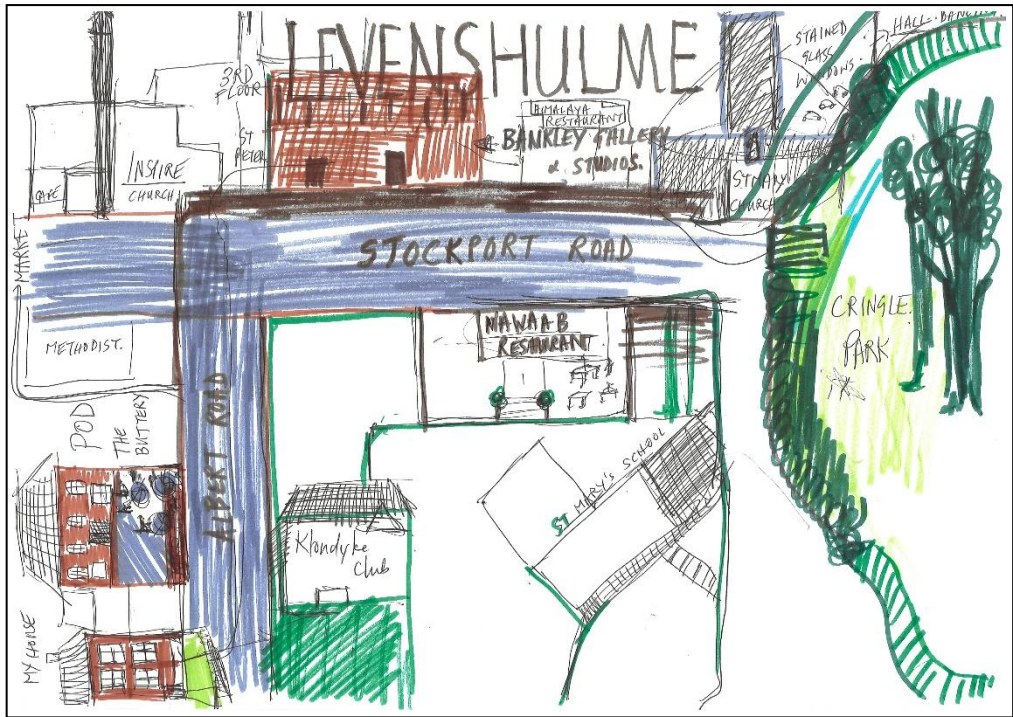 LEVENSHULME
3RD
FLOOR
ST
PETER
INSPIRE
CHURCH
CAFE
HIMALAYA
RESTAURANT
BANKLEY GALLERY
& STUDIOS.
STAINED
GLASS
WINDOWS.
HALL
ST MARY
CHURCH
MARKET
STOCKPORT ROAD
METHODIST.
ALBERT ROAD
NAWAAB
RESAURANT
CRINGLE.
PARK
POD
THE
BUTTERY
ST MARY'S SCHOOL
Klondyke
Club
MY HOUSE